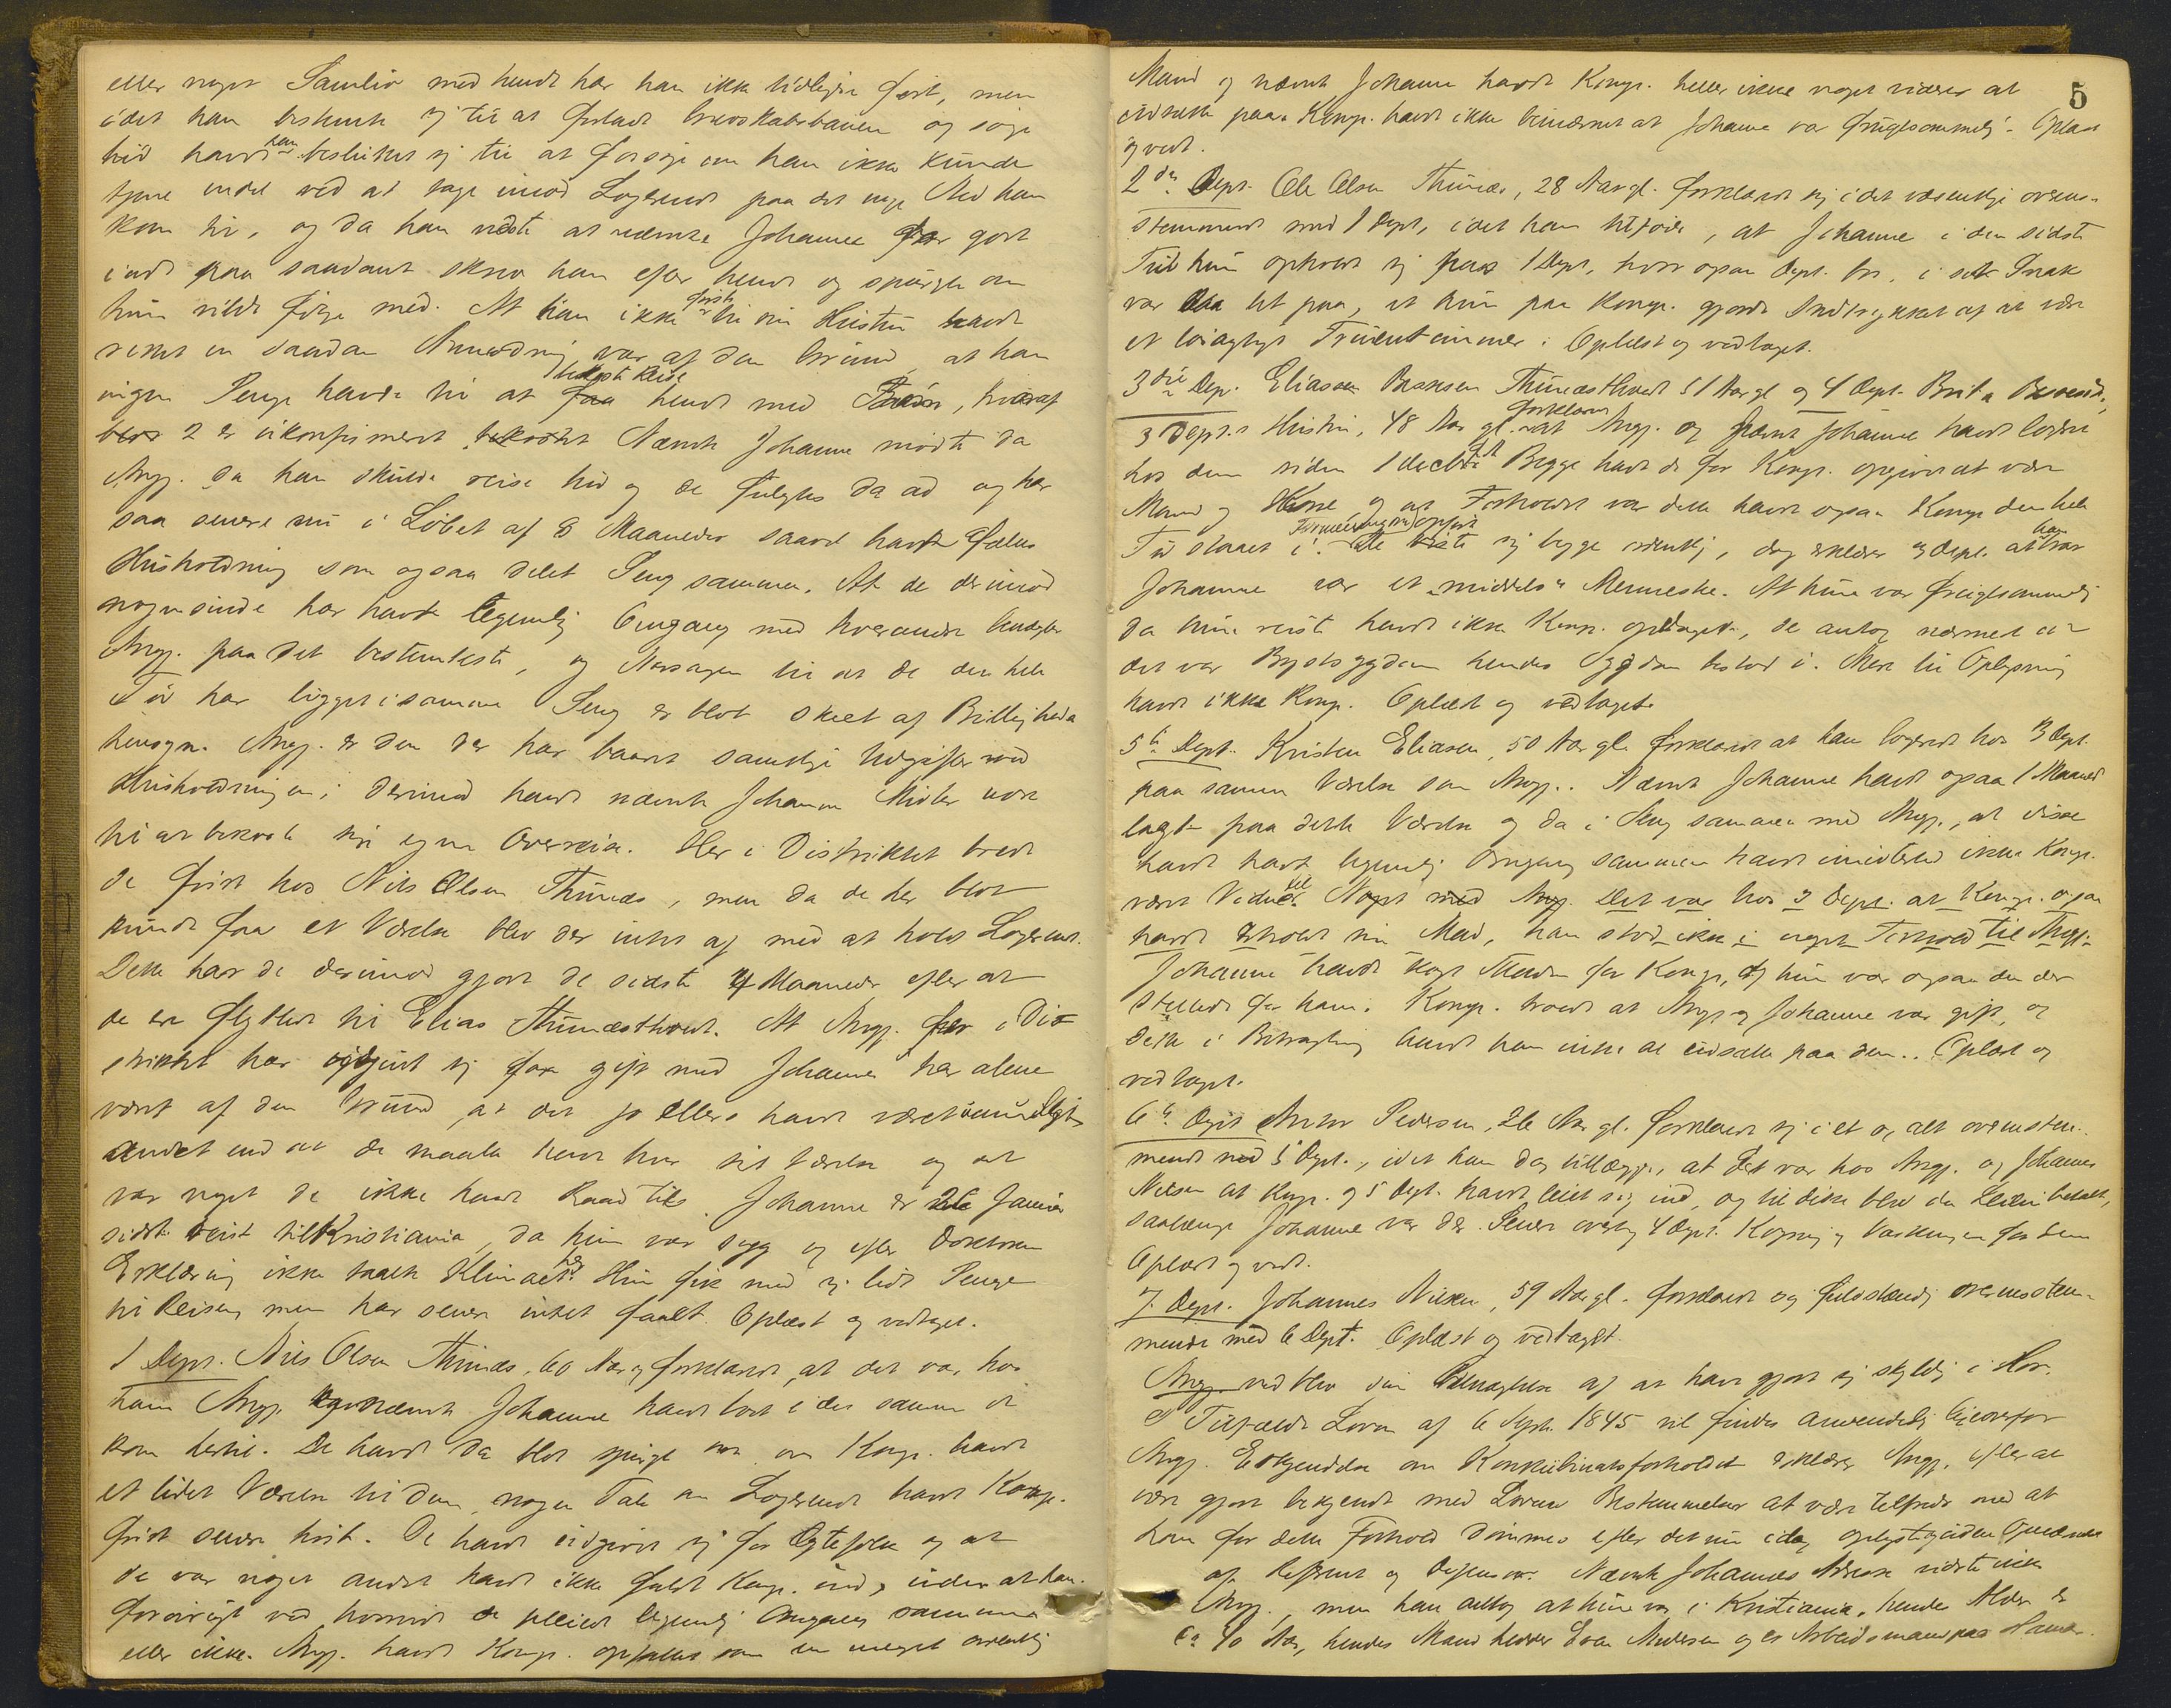 eller noget Samliv med hende har han ikke tidligere ført, men
idet han bestemte sig til at forlade og søge
hid havde han besluttet sig til at forsøge om han ikke kunde
tjene endel ved at tage imod Logerende paa det nye Sted han
kom til, og da han vidste at nævnte Johanne før gjort
i paa saadant skrev han efter hende og spurgte om
hun vilde følge med. At han ikke først til sin Hustru havde
rettet en saadan Anmodning, var af den Grund, at han
ingen Penge havde til at bekoste Reise faa hende med Børn, hvoraf
2 er ukonfirmeret. Nævnte Johanne mødte da
Angj. da han skulde reise hid og de fulgtes da ad og har
saa senere nu i Løbet af 8 Maaneder saavel havt fælles
Husholdning som ogsaa delt Seng sammen. At de derimod
nogensinde har havt legemlig Omgang med hverandre benægter
Angj. paa det bestemteste, og Aarsagen til at de den hele
Tid har ligget i samme Seng er blot skeet af Billigheds
hensyn. Angj. er den der har baaret samtlige Udgifter ved
Husholdningen; derimod havde nævnte Johanne Midler nok
til at bekoste sin egen Overreise. Her i Distriktet boede
de først hos Nils Olsen Thunæs, men da de her blot
kunde faa et Værelse blev der intet af med at holde Logerende.
Dette har de derimod gjort de sidste 4 Maaneder efter at
de er flyttet til Elias Thunæsthvedt. At Angj. her i Di-
striktet har udgivet sig for gift med Johanne har alene
været af den Grund, at det jo ellers havde været umuligt
andet end at de maatte have hver sit Værelse og det
var noget de ikke havde Raad til. Johanne er 26 Januar
sidst reist til Kristiania, da hun var syg og efter Doktorens
Erklæring ikke taalte Klimaet her. Hun fik med sig lidt Penge
til Reisen, men har senere intet faaet. Oplæst og vedtaget.
1 Dept. Nils Olsen Thunæs, 60 Aar gl. forklarede, at det var hos
ham Angj. og nævnte Johanne havde boet i det samme de
kom hertil. De havde da blot spurgt om Komp. havde
et lidet Værelse til dem, nogen Tale om Logerende havde Komp.
først senere hørt. De havde udgivet sig for Ægtefolk og at
de var noget andet havde ikke faldt Komp. ind, uden at han
forøvrigt ved hvorvidt de pleiede legemlig Omgang sammen
eller ikke. Angj. havde Komp. opfattet som en meget ordentlig
5
Mand og nævnte Johanne havde Komp. heller ikke noget videre at
udsætte paa. Komp. havde ikke bemærket at Johanne var frugtsommelig. Oplæst
og vedt.
2den Dept. Ole Olsen Thunæs, 28 Aar gl. forklarede sig i det væsentlige overens-
stemmende med 1 Dept., idet han tilføier, at Johanne i den sidste
Tid hun opholdt sig hos 1 Dept., hvor ogsaa Dept. bor, i sit Snak
var lidt paa, at hun paa Komp. gjorde Indtrykket af at være
et løsagtigt Fruentimmer. Oplæst og vedtaget.
3die Dep. Eliassen Thunæsthvedt 51 Aar gl. og 4 Dept. Brita
3 Dept.s Hustru, 48 Aar gl. forklarer at Angj. og nævnte Johanne havde logeret
hos dem siden 1 Begge havde de for Komp. opgivet at være
Mand og Kone og at Forholdet var dette havde ogsaa Komp. den hele
Tid staaet i Formening om opført De viste sig begge ordentlig, dog erklærer 3 Dept. at han
Johanne var et „middels“ Menneske. At hun var frugtsommelig
da hun reiste havde ikke Komp. opdaget, de antog nærmest at
det var Brystsygdom hendes Sygdom bestod i. Mere til Oplysning
havde ikke Komp. Oplæst og vedtaget.
5te Dept. Kristen Eliasen, 50 Aar gl. forklarede at han logerede hos 3 Dept.
paa samme Værelse som Angj. Nævnte Johanne havde ogsaa 1 Maaned
ligget paa dette Værelse og da i Seng sammen med Angj., at disse
havde havt legemlig Omgang sammen havde imidlertid ikke Komp.
været Vidne til. Noget med Angj. Det var hos 3 Dept. at Komp. ogsaa
havde erholdt sin Mad, han stod ikke i noget Forhold til Angj.
Johanne havde kogt Maden for Komp., og hun var ogsaa den der
stellede for ham. Komp. troede at Angj. og Johanne var gift, og
dette i Betragtning havde han intet at udsætte paa dem. Oplæst og
vedtaget.
6te Dept. Anton Pedersen, 26 Aar gl. forklarede sig i et og alt overensstem-
mende med 5 Dept., idet han dog tillægger, at det var hos Angj. og Johanne
Nilsen at Komp. og 5 Dept. havde leiet sig ind, og til disse blev da Leien betalt,
saalænge Johanne var der. Senere overtog 4 Dept. Kogning og Vaskningen for dem
Oplæst og vedt.
7. Dept. Johannes Nilsen, 59 Aar gl. forklarede sig fuldstændig overensstem-
mende med 6 Dept. Oplæst og vedtaget.
Angj. vedblev sin Benægtelse af at have gjort sig skyldig i Hor.
I Tilfælde Loven af 6 Septr. 1845 vil findes anvendelig ligeoverfor
Angj. Erkjendelse om Konkubinatsforholdet erklærer Angj. efter at
være gjort bekjendt med Lovens Bestemmelser at være tilfreds med at
han for dette Forhold dømmes efter det nu idag oplyste uden
af Referent og Defensor. Nævnte Johannes Adresse vidste ikke
Angj., men han antog at hun var i Kristiania, hendes Alder er
ca 40 Aar, hendes Mand hedder Andersen og er Arbeidsmand paa Hamar.